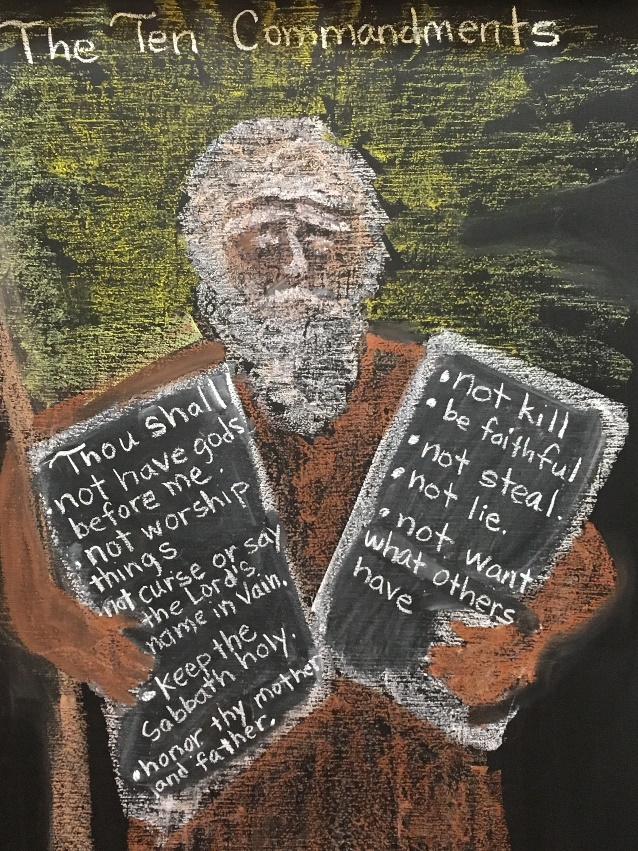 The Ten Commandments
Thou shall
• not have gods
before me.
• not worship
things
• not curse or say
the Lord's
name in Vain.
• keep the
Sabbath holy.
• honor thy mother
and father.
• not kill
• be faithful
• not steal.
• not lie.
• not want
what others
have